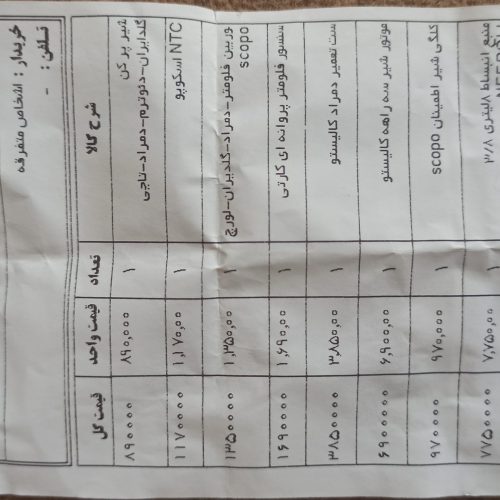 تلفن : -
خریدار : اشخاص متفرقه
شرح کالا تعداد قیمت واحد قیمت کل
شیر پر کن
گلدایران-دئوترم-دمراد-تاچی ۱ ۸۹۰,۰۰۰ ۸۹۰۰۰۰
NTC اسکوپو ۱ ۱,۱۷۰,۰۰ ۱۱۷۰۰۰۰
توربین فلومتر-دمراد-گلدیران-لورچ
scopo ۱ ۱,۳۵۰,۰۰ ۱۳۵۰۰۰۰
سنسور فلومتر پروانه ای کارتی ۱ ۱,۶۹۰,۰۰ ۱۶۹۰۰۰۰
ست تعمیر دمراد کالیستو ۱ ۳,۸۵۰,۰۰ ۳۸۵۰۰۰۰
موتور شیر سه راهه کالیستو ۱ ۶,۹۰۰,۰۰ ۶۹۰۰۰۰۰
کلگی شیر اطمینان scopo ۱ ۹۷۰,۰۰۰ ۹۷۰۰۰۰
منبع انبساط ۸لیتری ۳/۸ ۱ ۷,۷۵۰,۰۰ ۷۷۵۰۰۰۰